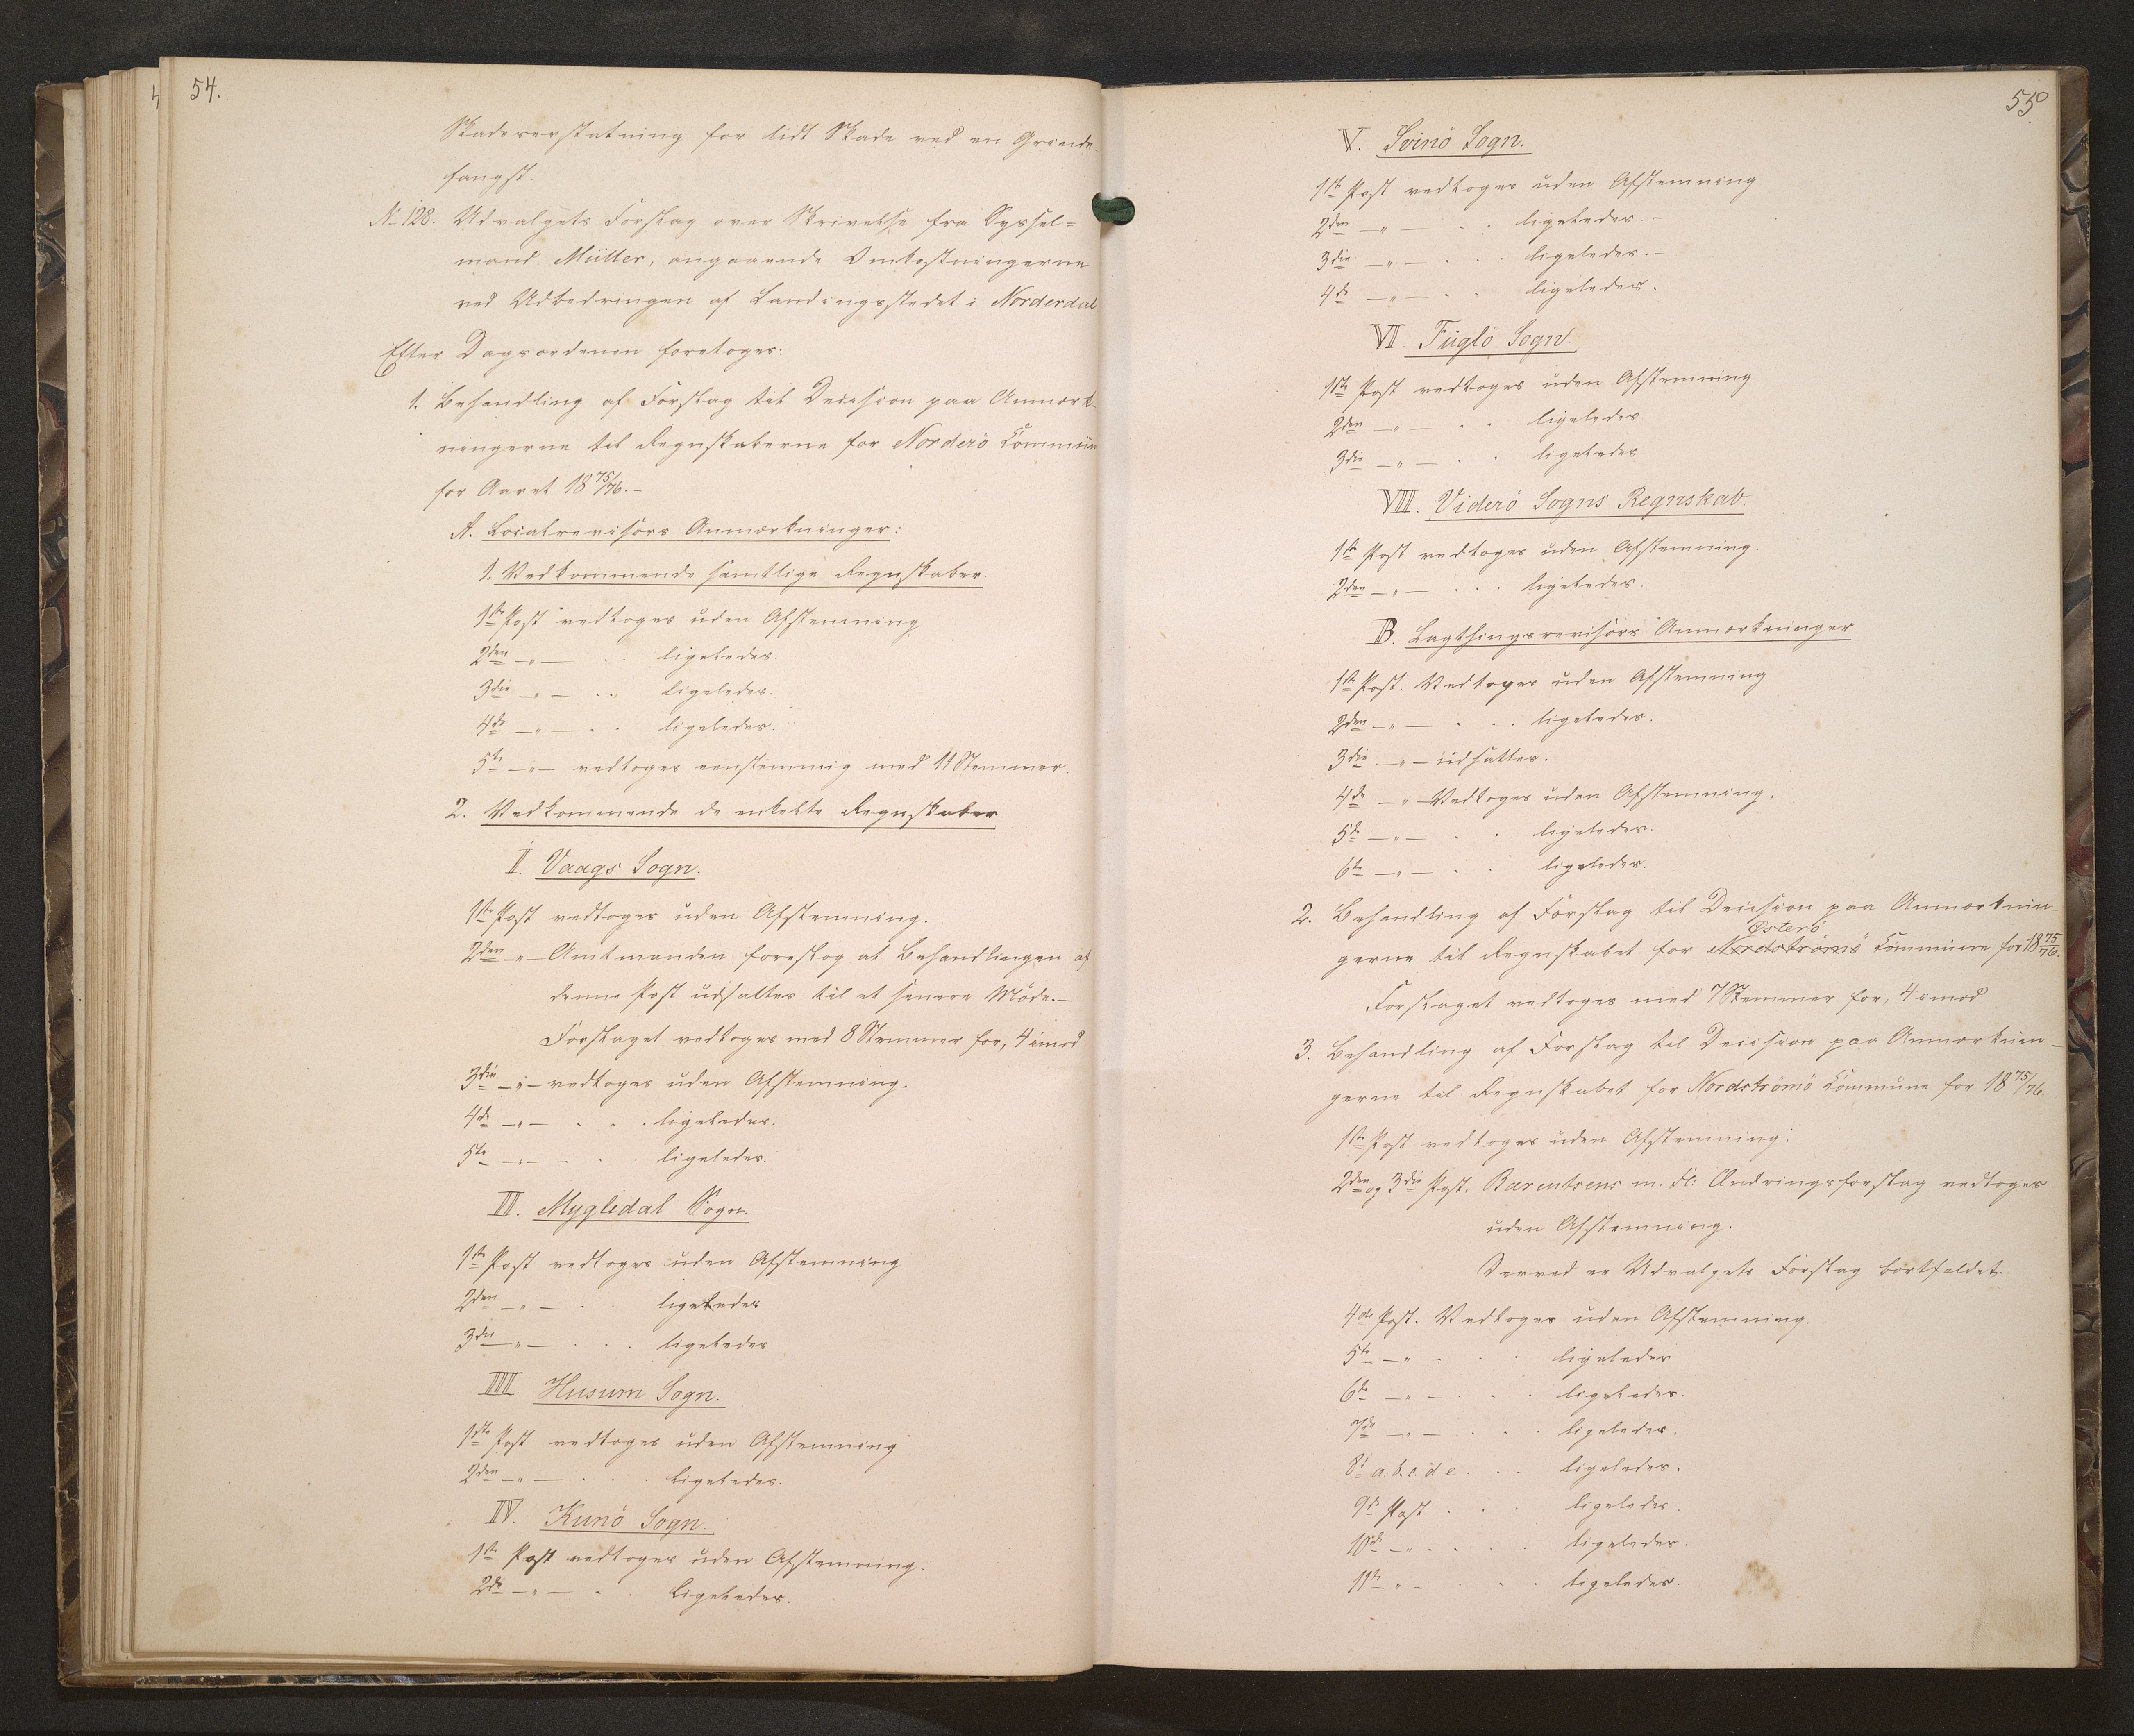 54.
Skadeserstatning for lidt Skade ved en Grinde-
fangst.
No 128. Udvalgets Forslag over Skrivelse fra Syssel=
mand Müller, angaaende Omkostningerne
ved Udbedringen af Landingsstedet i Norderdal
Efter Dagsordenen foretoges:
1. Behandling af Forslag til Decision paa Anmærk-
ningerne til Regnskaberne for Norderö Commun
for Aaret 18 75/76. –
A. Localrevisors Anmærkninger:
1. Vedkommende samtlige Regnskaber.
1ste Post vedtoges uden Afstemning
2den –„– . . ligeledes.
3die –„– . . ligeledes.
4de –„– . . ligeledes.
5te –„– vedtoges eenstemmig med 11 Stemmer.
2. Vedkommende de enkelte Regnskaber
I. Vaags Sogn.
1ste Post vedtoges uden Afstemning.
2den –„– Amtmanden foreslog at Behandlingen af
denne Post udsattes til et senere Möde.–
Forslaget vedtoges med 8 Stemmer for, 4 imod
3die –„– vedtoges uden Afstemning.
4de –„– . . . ligeledes.
5te –„– . . . ligeledes.
II. Mygledal Sogn.
1ste Post vedtoges uden Afstemning
2den –„– . . ligeledes
3die –„– . . . ligeledes
III. Husum Sogn.
1ste Post vedtoges uden Afstemning
2den –„– . . . ligeledes.
IV. Kunö Sogn.
1ste Post vedtoges uden Afstemning.
2de –„– . . ligeledes.
55.
V. Svinö Sogn.
1ste Post vedtoges uden Afstemning
2den –„– . . ligeledes. –
3die –„– . . . ligeledes. –
4de –„– . . ligeledes.
VI. Fuglö Sogn
1ste Post vedtoges uden Afstemning
2den –„– . . ligeledes
3die –„– . . ligeledes
VIII. Viderö Sogns Regnskab.
1ste Post vedtoges uden Afstemning.
2den –„– . . . ligeledes.
B. Lagthingsrevisors Anmærkninger
1ste Post. Vedtoges uden Afstemning
2den –„– . . . ligeledes.
3die –„– udsattes.
4de –„– Vedtoges uden Afstemning.
5te –„– . . ligeledes.
6te –„– . . ligeledes.
2. Behandling af Forslag til Decision paa Anmærknin-
Österö
gerne til Regnskabet for Nordströmö Commune for 18 75/76.
Forslaget vedtoges med 7 Stemmer for, 4 imod
3. Behandling af Forslag til Decision paa Anmærknin-
gerne til Regnskabet for Nordströmö Commune for 18 75/76.
1ste Post vedtoges uden Afstemning.
2den og 3die Post. Bærentsens m. Fl: Ændringsforslag vedtoges
uden Afstemning.
Derved er Udvalgets Forslag bortfaldet.
4de Post. Vedtoges uden Afstemning.
5te –„ . . . ligeledes
6te –„– . . . ligeledes.
7de –„– . . . . ligeledes.
8de a. b. c. d e . . . ligeledes.
9de Post . . . ligeledes.
10de –„– . . . ligeledes.
11te „– . . . ligeledes.